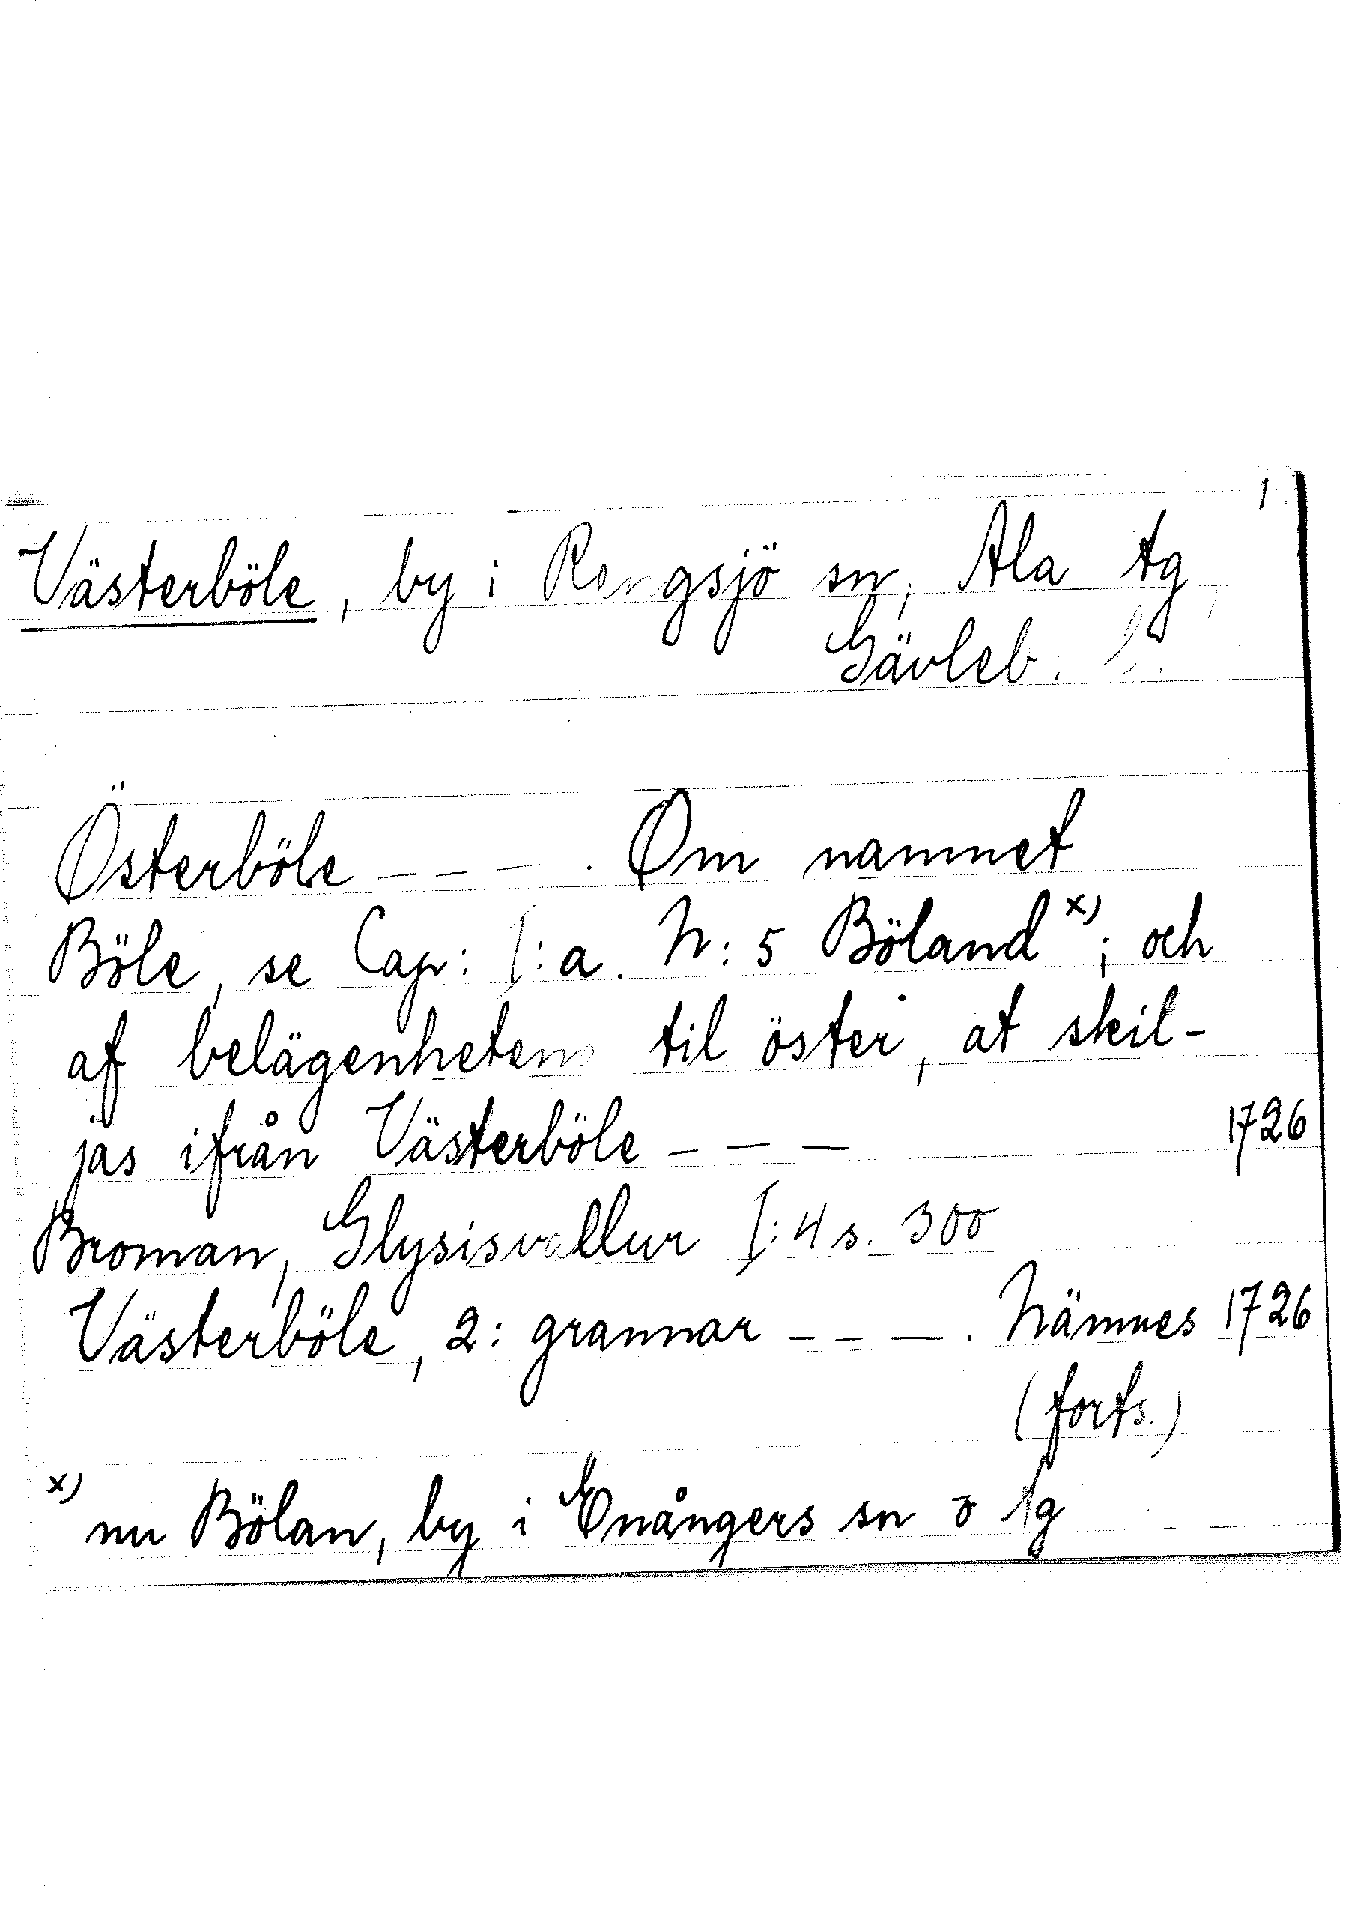 1
Västerböle, by i Rengsjö sn, Ala tg,
Gävleb. l.
Österböle _ _ _ _ . Om namnet
Böle, se Cap: I:a. N: 5 Böland x); och
af belägenheten til öster, at skil-
jas ifrån Västerböle _ _ _ 1726
Broman, Glysisvallur I:4 s. 300
Västerböle, 2: grannar _ _ _ . Nämnes 1726
(forts.)
x) nu Bölan, by i Enångers sn o tg